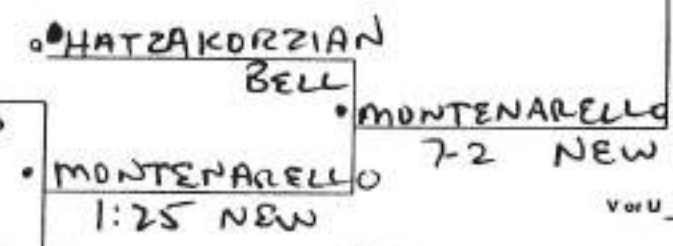 HATZAKORZIAN
BELL
MONTENARELLO
7-2 NEW
MONTENARELLO
1:25 NEW
V or U